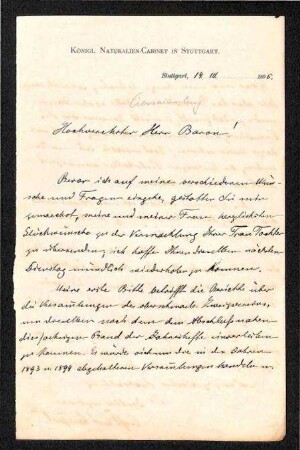 KÖNIGL. NATURALIEN-CABINET IN STUTTGART.
Stuttgart, 14. III. 1895.
Hochverehrter Herr Baron!
Bevor ich auf meine verschiedenen Wün-
sche und Fragen eingehe, gestatten Sie mir
zunächst, meine und meiner Frau herzlichsten
Glückwünsche zu der Vermählung Ihrer Frau Tochter
zu übersenden; ich hoffe Ihnen dieselben nächsten
Dienstag mündlich wiederholen zu können.
Meine erste Bitte betrifft die Berichte über
die Versammlungen des oberschwäb. Zweigvereins,
um dieselben noch dem dem Abschluss nahen
diesjährigen Band der Jahreshefte einverleiben
zu können. Es würde sich um die in den Jahren
1893 u 1894 abgehaltenen Versammlungen handeln u.